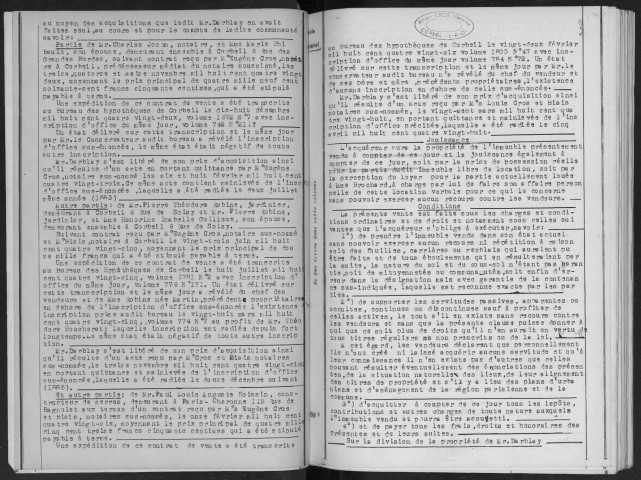 au moyen des acquisitions que ledit Mr.Darblay en avait
faites seul,au cours et pour le compte de ladite communauté
savoir:
Partie de Mr.Charles Jozon, notaire, et Mme Marie
bault, son épouse, demeurant ensemble à Corbeil 6 Rue des
Grandes Bordes, suivant contrat reçu par Me Eugène Cros,
à Corbeil, prédécesseur médiat du notaire soussigné,les
treize,quatorze et seize novembre mil huit cent quatre vingt
deux, moyennant le prix principal de quatre mille neuf cent
soixante-sept francs cinquante centimes,qui a été stipulé
payable à terme.
Une expédition de ce contrat de vente a été transcrite
au bureau des hypothèques de Corbeil le dix-huit décembre
mil huit cent quatre vingt-deux, volume 1672 N°7 avec ins-
cription d'office du même jour, volume 744 N°
Un état délivré sur cette transcription et le même jour
par Mr.le Conservateur audit bureau a révélé l'inscription
d'office sus-énoncée, le même état était négatif de toute
autre inscription.
Mr.Darblay s'est libéré de son prix d'acquisition ainsi
qu'il résulte d'un acte en portant quittance par Me Eugène
Cros,notaire sus-nommé les six et huit février mil huit cent
quatre vingt-trois.Ce même acte contient mainlevée de l'insc
d'office sus-énoncée ,laquelle a été radiée le deux juillet
même année (1883).
Autre partie: de Mr.Pierre Théodore Robine, jardinier,
demeurant à Corbeil 6 Rue de Soisy et Mr. Pierre Robine,
jardinier, et Mme Honorine Isabelle Gailloux, son épouse,
demeurant ensemble à Corbeil 6 Rue de Soisy.
Suivant contrat reçu par Me Eugène Cros,notaire sus-nommé
et Me Blais,notaire à Corbeil le vingt-trois juin mil huit
cent quatre vingt-cinq, moyennant le prix principal de
ze mille francs qui a été stipulé payable à terme.
Une expédition de ce contrat de vente a été transcrite
au Bureau des Hypothèques de Corbeil le huit juillet mil huit
cent quatre vingt-cinq, volume 1781 N°2 avec inscription d'
office du même jour, volume 776 N°17. Un état délivré sur
cette transcription et le même jour a révélé du chef des
vendeurs et de Mme Robine née Martin,précédente propriétaire,
en dehors de l'inscription d'office sus-énoncée l'existence
inscription prise audit bureau le vingt-huit mars mil huit
cent quatre vingt-cinq, volume 774 N°7 au profit de Mr. Théo
dore Boucherat laquelle inscription est radiée depuis fort
longtemps.Le même état était négatif de toute autre inscrip
tion.
Mr.Darblay s'est libéré de son prix d'acquisition ainsi
qu'il résulte d'un acte reçu par Me Cros et Blais notaires
sus-nommés,le treize novembre mil huit cent quatre vingt-cinq
en portant quittance et mainlevée de l'inscription d'office
sus-énoncée,laquelle a été radiée le douze décembre suivant
(1885).
Et autre partie: de Mr.Paul Louis Auguste Poissin, cons-
tructeur de serres, demeurant à Paris-Charonne 115 Rue de
Bagnolet aux termes d'un contrat reçu par Me Eugène Cros
et Blais, notaires sus-nommés, le onze février mil huit cent
quatre vingt-six, moyennant le prix principal de quatre mille
cinq cent trois francs cinquante centimes qui a été stipulé
payable à terme.
Une expédition de ce contrat de vente a été transcrite
au bureau des hypothèques de Corbeil le vingt-deux février
mil huit cent quatre vingt-six volume 1800 N°47 avec ins-
cription d'office du même jour volume 784 N°72. Un état
délivré sur cette transcription et le même jour par Mr.le
conservateur audit bureau n'a révélé du chef du vendeur et
de ses père et mère ,précédents propriétaires,l'existence
d'aucune inscription en dehors de celle sus-énoncée.
Mr.Darblay s'est libéré de son prix d'acquisition ainsi
qu'il résulte d'un acte reçu par Me Louis Cros et Blais
notaires sus-nommés, le sept mars mil huit cent qua
tre vingt-huit, en portant quittance et mainlevée de l'ins-
cription d'office précitée,laquelle a été radiée le cinq
avril mil huit cent quatre vingt-huit.
Jouissance
L'acquéreur aura la propriété de l'immeuble présentement
vendu à compter de ce jour et la jouissance également à
compter de ce jour, soit par la prise de possession réelle
pour la partie dudit immeuble libre de location, soit par
la perception du loyer pour la partie actuellement louée
à Mme Brochard,à charge par lui de faire son affaire person
nelle de cette location verbale pour ce qui la concerne
sans pouvoir exercer aucun recours contre les vendeurs.
Conditions
La présente vente est faite sous les charges et condi-
tions ordinaires et de droit et notamment sous celles sui
vantes que l'acquéreur s'oblige à exécuter,savoir:
1°) de prendre l'immeuble vendu dans son état actuel
sans pouvoir exercer aucun recours ni répétition à raison
soit des fouilles, carrières ou remblais qui auraient pu
être faits et de tous éboulements qui en résulteraient par
la suite, la nature du sol et du sous-sol n'étant pas garan
tie,soit de mitoyennetés ou communautés,soit enfin d'er-
reur dans la désignation mais avec garantie de la contenan
ce sus-indiquée, laquelle est reconnue exacte par les par
ties.
2°) de supporter les servitudes passives, apparentes ou
occultes, continues ou discontinues sauf à profiter de
celles actives, le tout s'il en existe sans recours contre
les vendeurs et sans que la présente clause puisse donner à
qui que ce soit plus de droits qu'il n'en aurait en vertu de
tous titres réguliers et non prescrits ou de la loi.
A cet égard, les vendeurs déclarent que personnellement
ils n'ont créé ni laissé acquérir aucune servitude et qu'à
leur connaissance il n'en existe pas d'autres que celles
pouvant résulter éventuellement des énonciations des présen
tes, de la situation naturelle des lieux,de leur alignement
des titres de propriété et s'il y a lieu des plans d'urba
nisme et d'aménagement de la région parisienne et de la
commune.
3°) d'acquitter à compter de ce jour tous les impôts,
contributions et autres charges de toute nature auxquels
l'immeuble vendu pourra être assujetti.
4°) et de payer tous les frais,droits et honoraires des
présentes et de leurs suites.
Sur la division de la propriété de Mr.Darblay